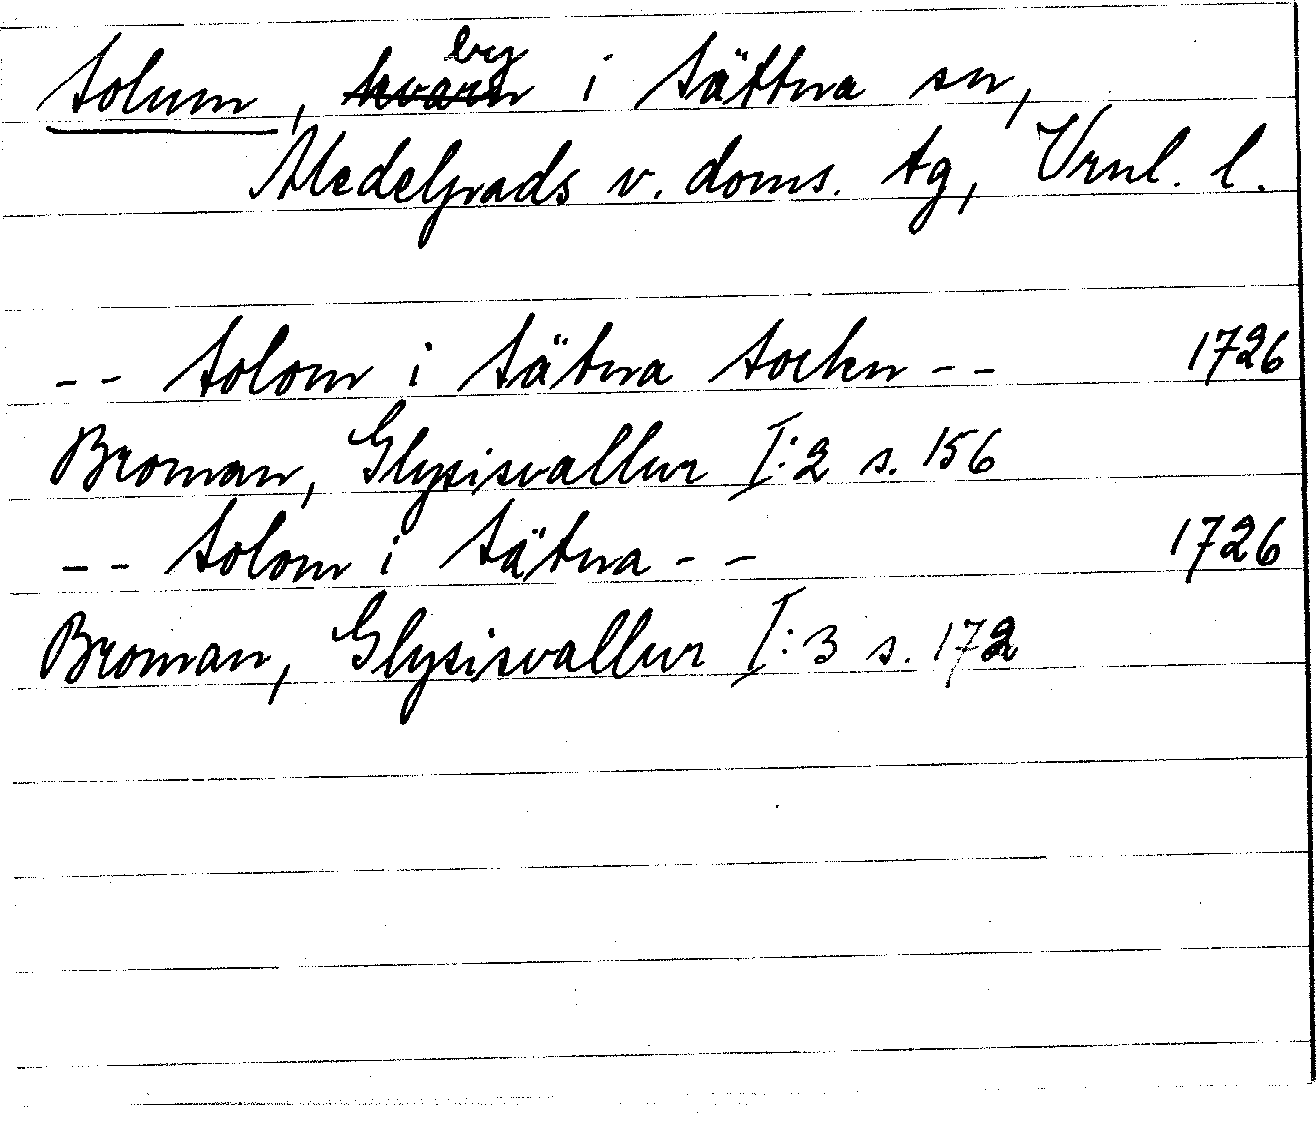 Solum, by i Sättna sn,
Medelpads v. doms. tg, Vrnl. l.
-- Solom i Sätna Sockn -- 1726
Broman, Glysisvallur I:2 s. 156
-- Solom i Sätna -- 1726
Broman, Glysisvallur I:3 s. 172